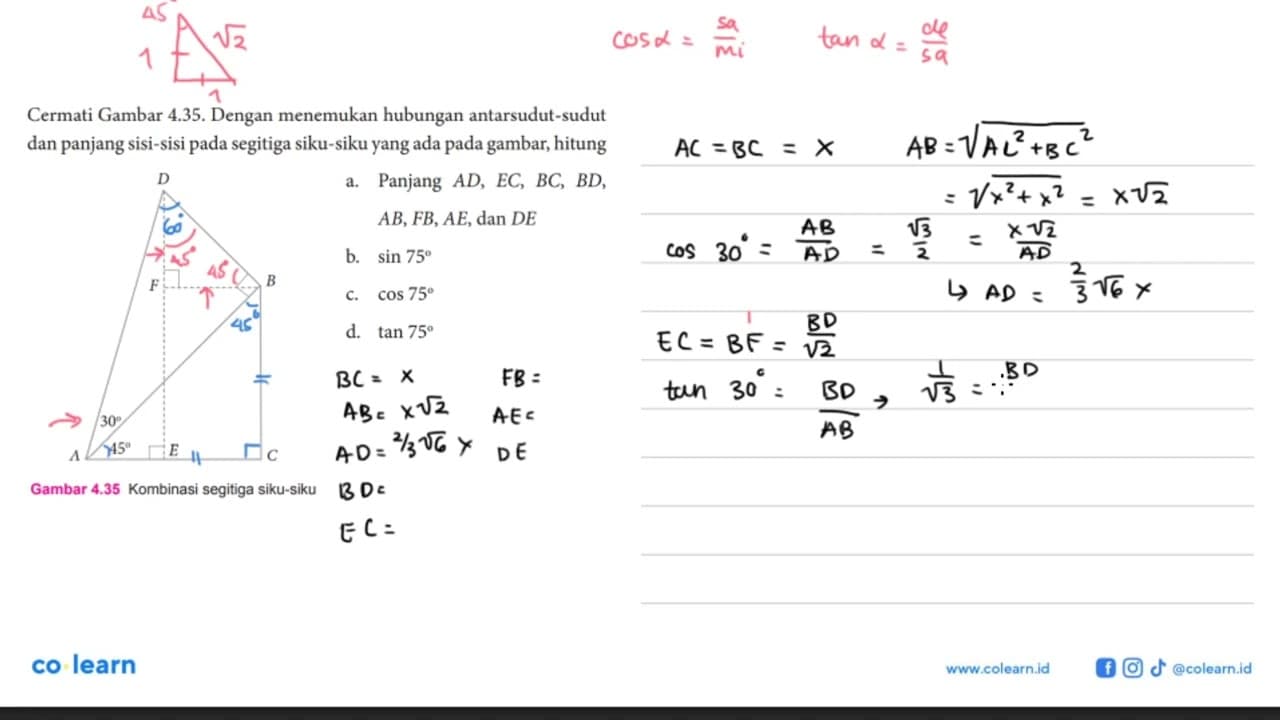 45°
1
√2
1
cos α = sa/mi
tan α = de/sa
Cermati Gambar 4.35. Dengan menemukan hubungan antarsudut-sudut
dan panjang sisi-sisi pada segitiga siku-siku yang ada pada gambar, hitung
a. Panjang AD, EC, BC, BD,
AB, FB, AE, dan DE
b. sin 75°
c. cos 75°
d. tan 75°
D
60°
45°
45
F
B
45°
30°
45°
A
E
C
Gambar 4.35 Kombinasi segitiga siku-siku
BC = x
AB = x√2
AD = 2/3 √6 x
BD =
EC =
FB =
AE =
DE
AC = BC = x
AB = √AC² + BC²
= √x² + x² = x√2
cos 30° = AB/AD = √3/2 = x√2/AD
↳ AD = 2/3 √6 x
EC = BF = BD/√2
tan 30° = BD/AB → 1/√3 = BD
co learn
www.colearn.id
@colearn.id